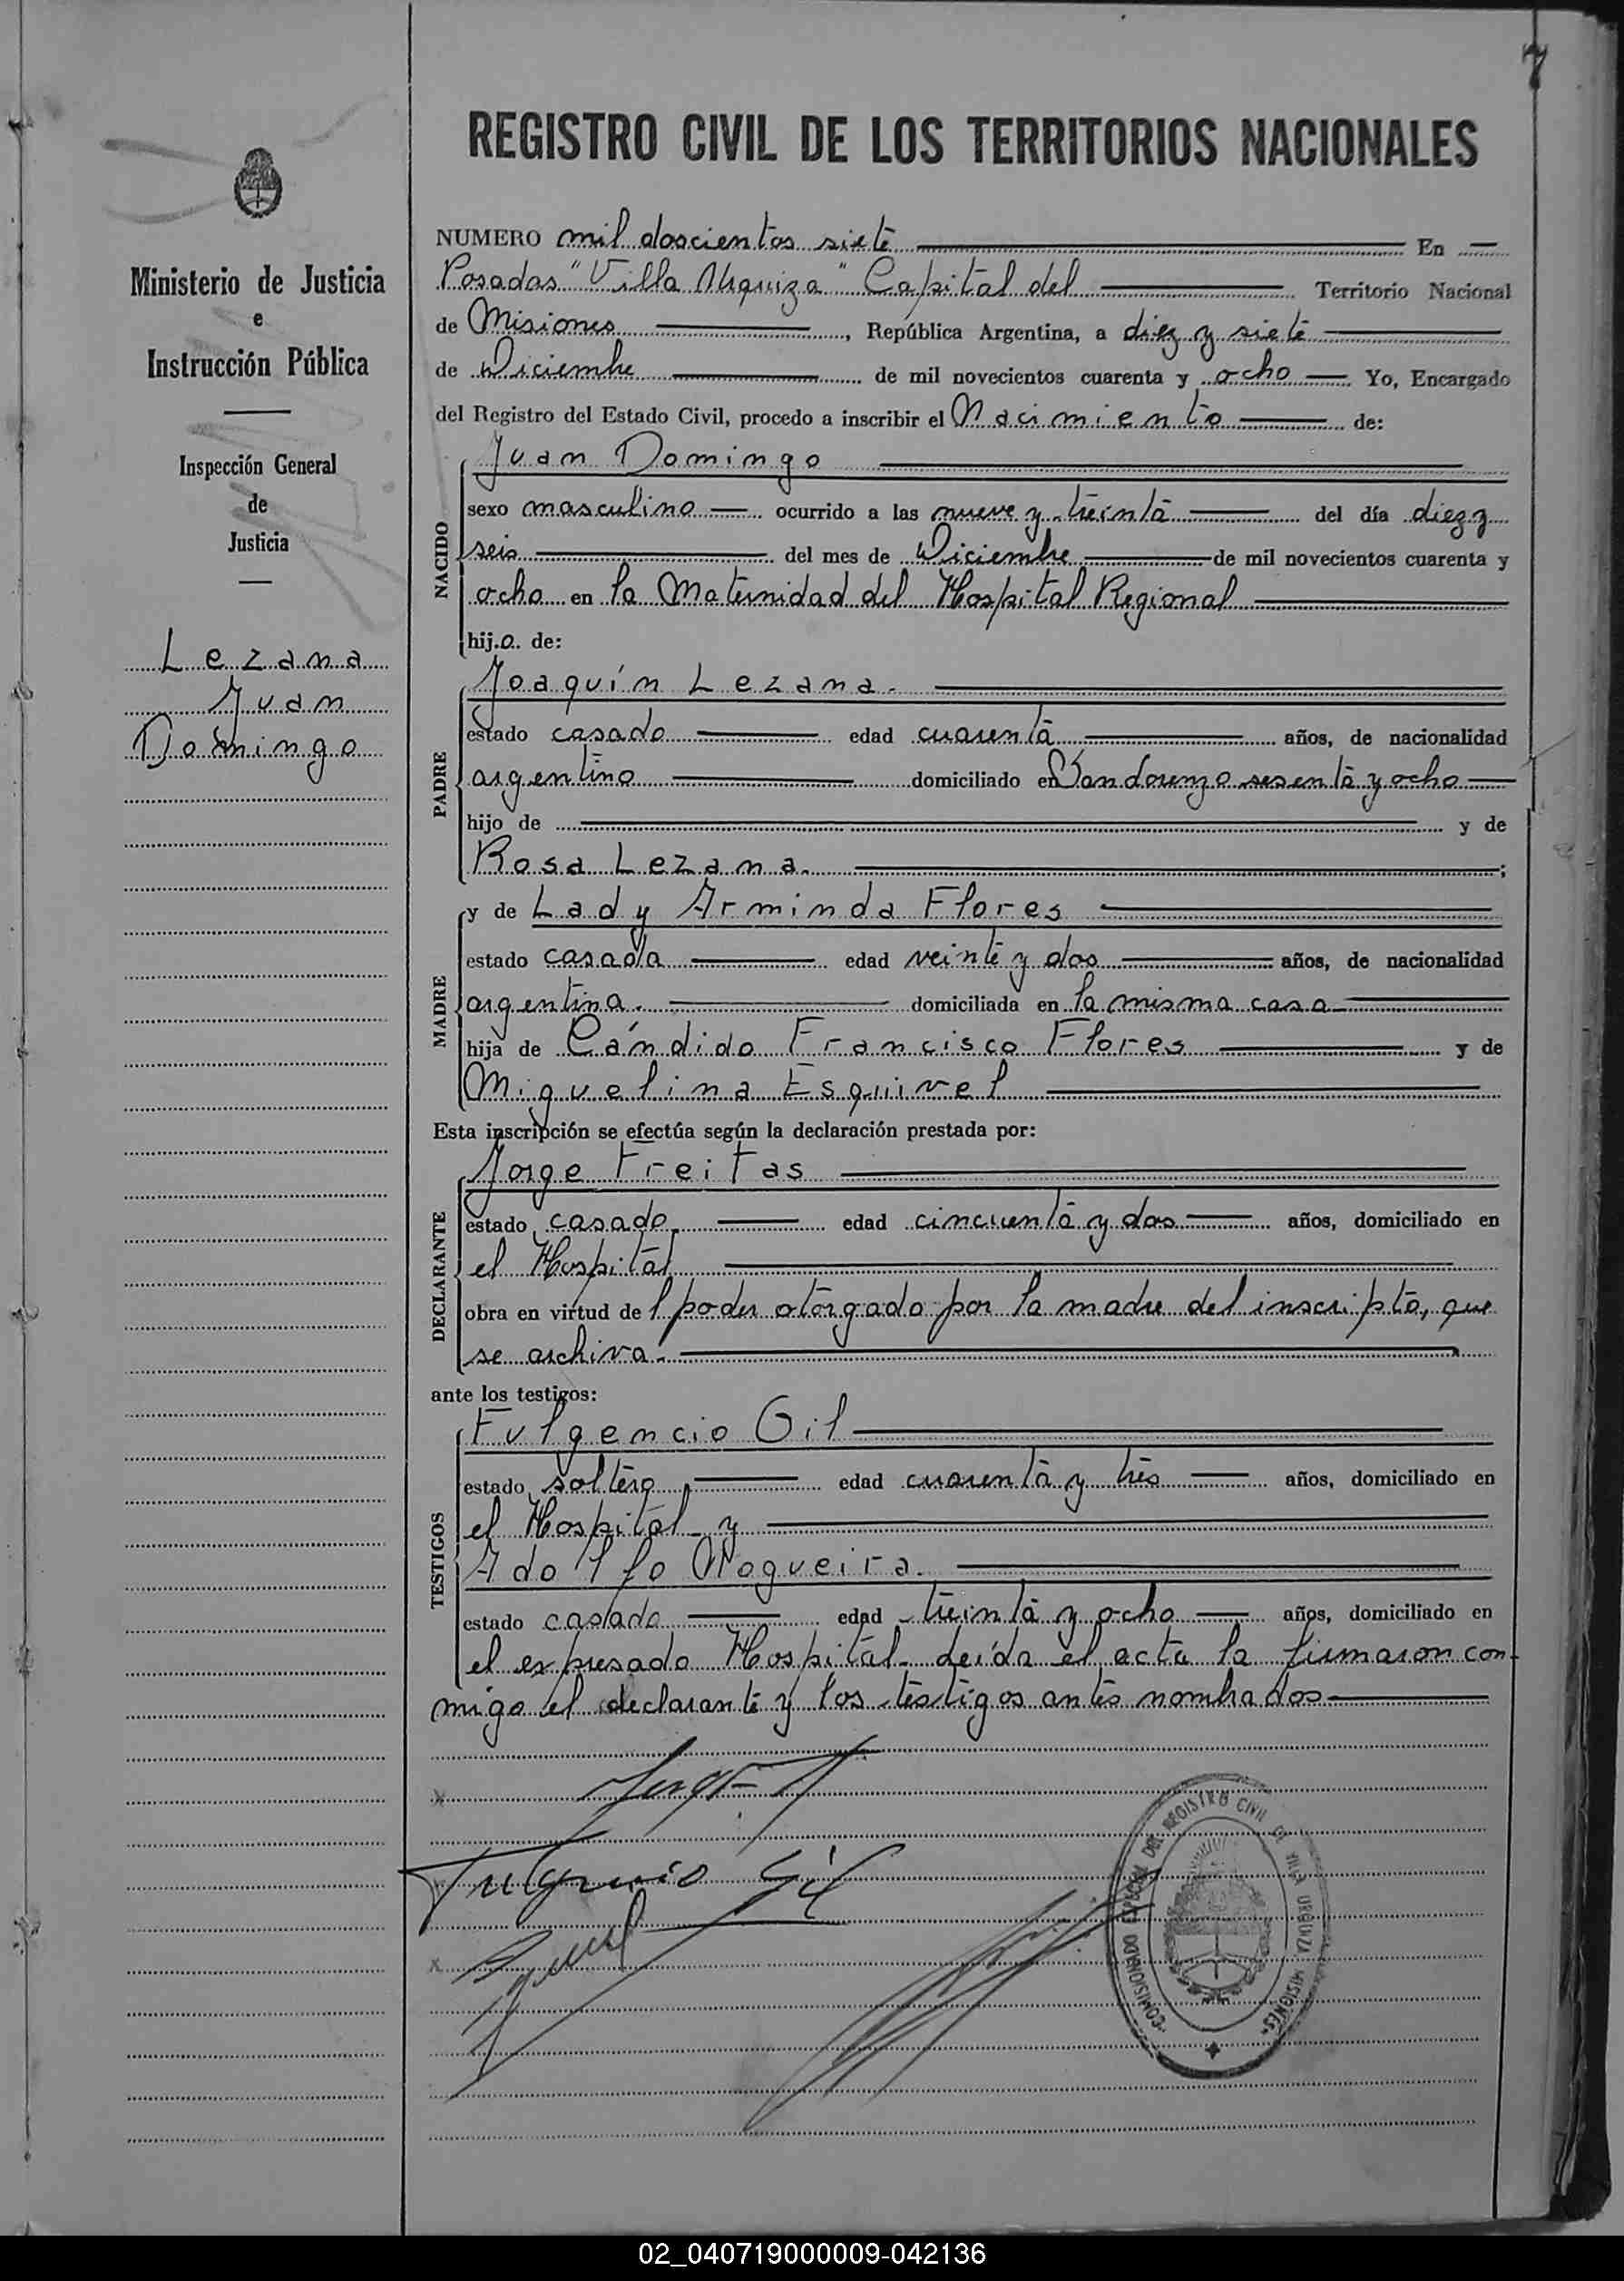 7
REGISTRO CIVIL DE LOS TERRITORIOS NACIONALES
Ministerio de Justicia
e
Instrucción Pública
Inspección General
de
Justicia
Lezana
Juan
Domingo
NUMERO mil doscientos siete En
Posadas "Villa Urquiza" Capital del Territorio Nacional
de Misiones, República Argentina, a diez y siete
de Diciembre de mil novecientos cuarenta y ocho Yo, Encargado
del Registro del Estado Civil, procedo a inscribir el Nacimiento de:
NACIDO
Juan Domingo
sexo masculino ocurrido a las nueve y treinta del día diez y
seis del mes de Diciembre de mil novecientos cuarenta y
ocho en la Maternidad del Hospital Regional
hijo de:
PADRE
Joaquín Lezana.
estado casado edad cuarenta años, de nacionalidad
argentino domiciliado en San Lorenzo sesenta y ocho
hijo de y de
Rosa Lezana. ;
MADRE
y de Lady Arminda Flores
estado casada edad veinte y dos años, de nacionalidad
argentina. domiciliada en la misma casa
hija de Cándido Francisco Flores y de
Miguelina Esquivel
Esta inscripción se efectúa según la declaración prestada por:
DECLARANTE
Jorge Freitas
estado casado edad cincuenta y dos años, domiciliado en
el Hospital
obra en virtud del poder otorgado por la madre del inscripto, que
se archiva.
ante los testigos:
TESTIGOS
Fulgencio Gil
estado soltero edad cuarenta y tres años, domiciliado en
el Hospital y
Adolfo Nogueira.
estado casado edad treinta y ocho años, domiciliado en
el expresado Hospital. Leída el acta la firmaron con-
migo el declarante y los testigos antes nombrados
Fulgencio Gil
COMISIONADO ESPECIAL DEL REGISTRO CIVIL DE VILLA URQUIZA MISIONES
02_040719000009-042136